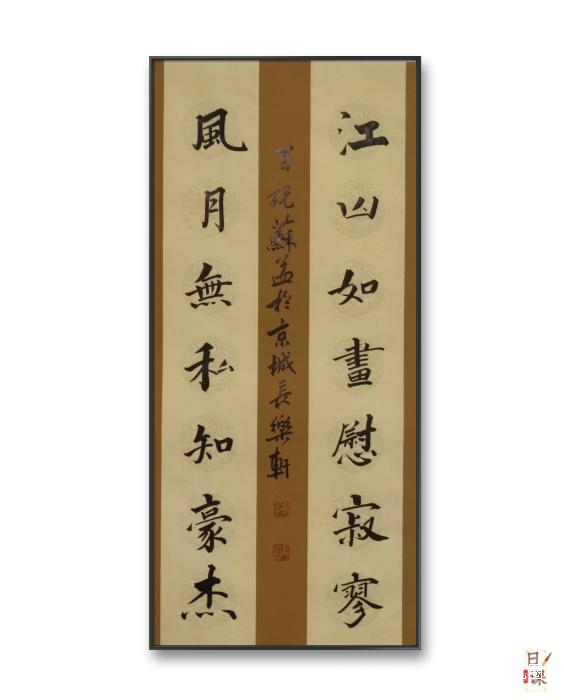 江山如畫慰寂寥
風月無私知豪杰
百祝蘇孟於京城長樂軒
日課